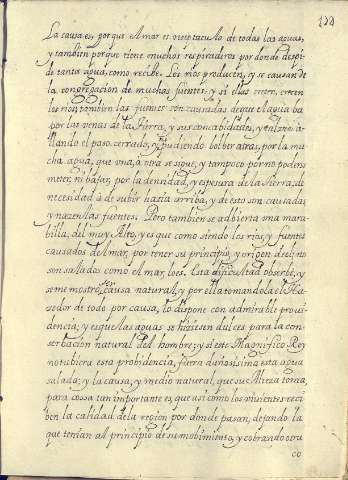 La causa es, porque el mar es receptaculo de todas las aguas,
y tambien porque tiene muchos respiraderos por donde despi-
de tanta agua, como recibe. Los rios producen, y se causan de
la congregacion de muchas fuentes: y si ellas crecen, crecen
los rios, tambien las fuentes son causadas de que el agua ba
por las venas de la tierra, y sus concabidades, y
allando el paso cerrado, y no pudiendo bolber atras, por la mu-
cha agua, que una, a otra se sigue, y tampoco por no poderse
meter ni bajar, por la densidad, y espesura de la tierra, de
necesidad a de subir hasta arriba, y de esto son causadas
y nazen las fuentes. Pero tambien se adbierta una mara-
billa, del muy Alto, y es que como siendo los rios, y fuentes
causados del mar, por tener su principio, y origen de el, no
son salados como el mar, lo es. Esta dificultad obserbe, y
se me mostro la causa natural, y por ella tomandola el Ha-
sedor de todo por causa, lo dispone con admirable proui-
dencia; y es que las aguas se hisiesen dulces para la con-
serbacion natural del hombre; y si este Magnifico Rey
no tubiera esta probidencia, fuera dañosisima esta agua
salada; y la causa, y medio natural, que su Alteza toma,
para cossa tan importante es, que asi como los viuientes reci-
ben la calidad de la region por donde pasan, dejando la
que tenian al principio de su mobimiento, y cobrando otra
co